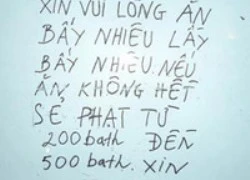 XIN VUI LÒNG ĂN
BẤY NHIÊU LẤY
BẤY NHIÊU. NẾU
ĂN KHÔNG HẾT
SẼ PHẠT TỪ
200 bath ĐẾN
500 bath. XIN